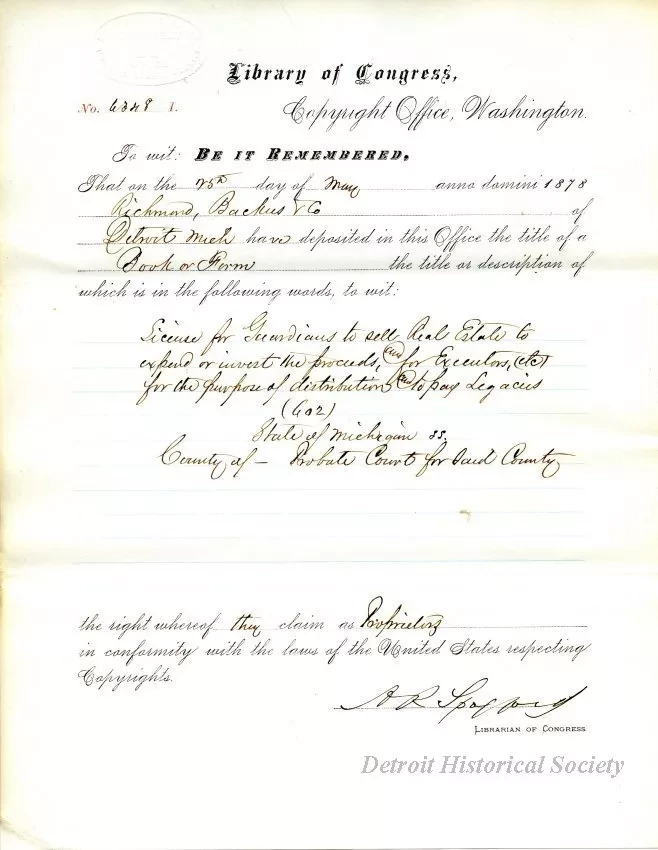 Library of Congress,
No. 6348 I. Copyright Office, Washington.
To wit: BE IT REMEMBERED,
That on the 25th day of May anno domini 1878
Richmond, Backus & Co of
Detroit Mich have deposited in this Office the title of a
Book or Form the title or description of
which is in the following words, to wit:
License for Guardians to sell Real Estate to
expend or invest the proceeds, (and for Executors, (etc)
for the purpose of distribution and to pay Legacies
(602)
State of Michigan ss.
County of — Probate Court for said County
the right whereof they claim as Proprietors
in conformity with the laws of the United States respecting
Copyrights.
A R Spofford
LIBRARIAN OF CONGRESS
Detroit Historical Society